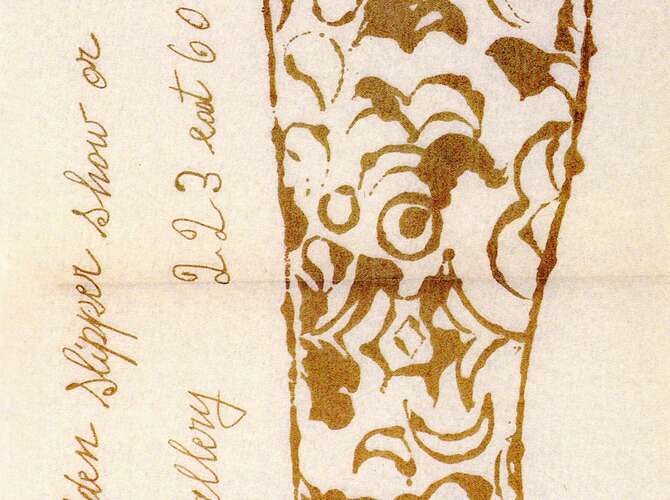 den slipper show or
allery 223 east 60